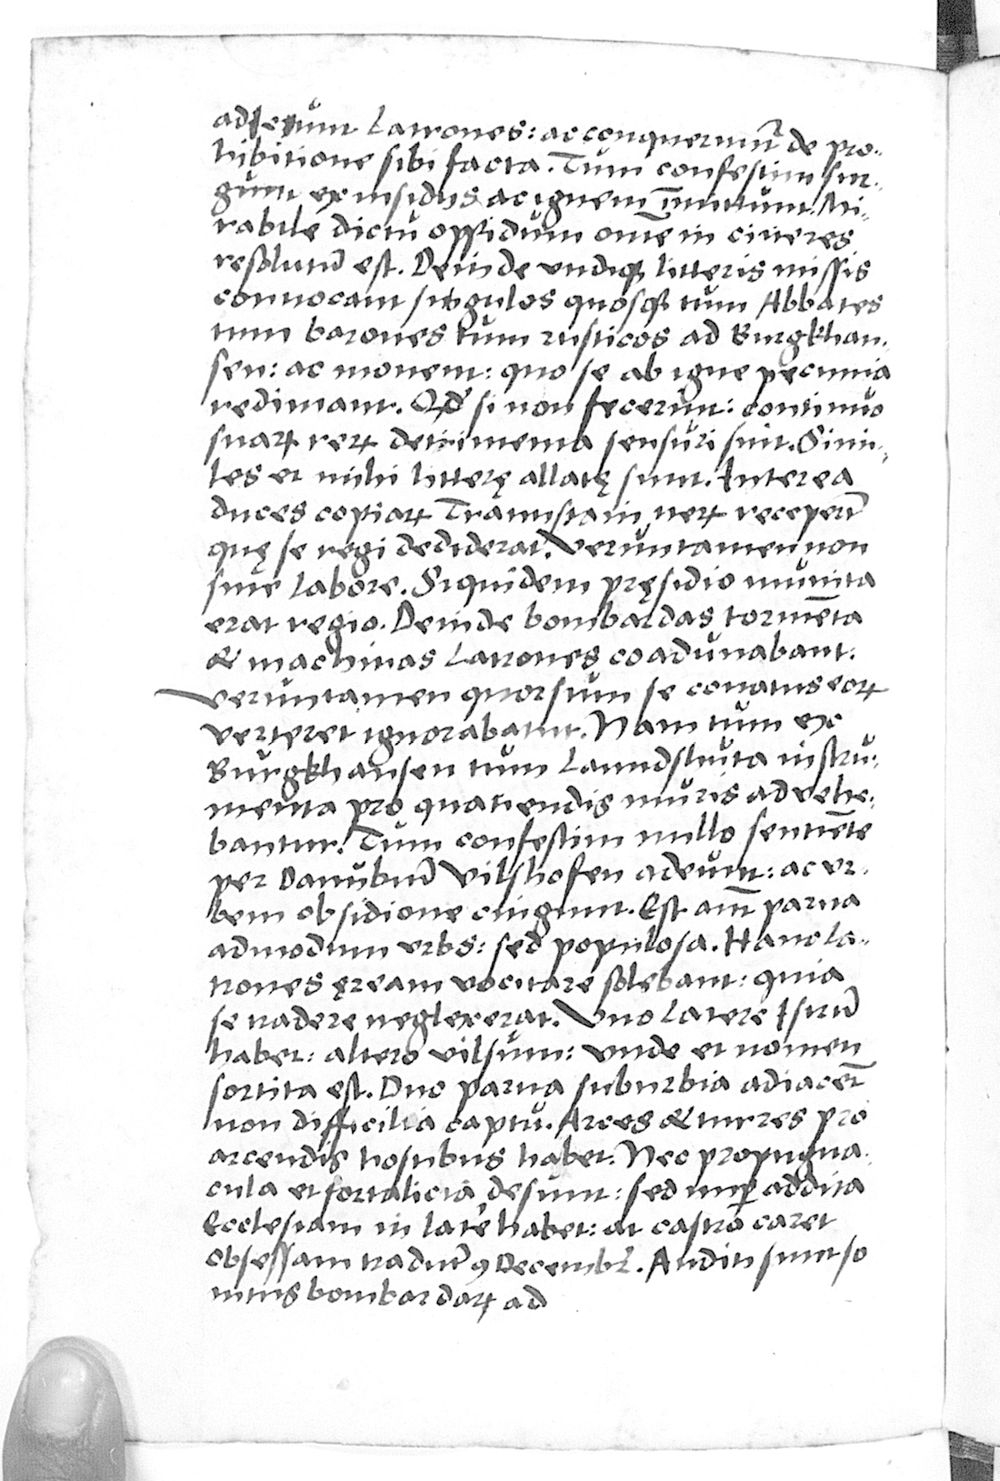 adierunt Latrones: ac conquerunt᷑ de pro-
hibitione sibi facta. Tum confestim sur-
gunt ex insidijs ac ignem īmittunt. Mi-
rabile dictu oppidum om̄e in cineres
resolutū est. Deinde vndiqꝫ litteris missis
conuocant singulos quosqꝫ tum Abbates
tum barones tum rusticos ad Burgkhau-
sen: ac monent: quo se ab igne pecunia
redimant. Qđ si non fecerint: continuo
suaꝝ reꝝ detrimenta sensuri sint. Simi-
les et mihi litterę allatę sunt. Interea
duces copiaꝝ Traunstain ueꝝ receperūt
quę se regi dediderat. Veruntamen non
sine labore. Siquidem pręsidio munita
erat regio. Deinde bombardas tormēta
& machinas Latrones coadunabant.
Veruntamen quorsum se conatus eoꝝ
verteret ignorabatur. Nam tum ex
Burgkhausen tum Lanndshuta instru-
menta pro quatiendis muris advehe-
bantur. Tum confestim nullo sentiēte
per Danubiū Vilshofen adeunt: ac vr-
bem obsidione cingunt. Est aūt parua
admodum vrbs: sed populosa. Hanc La-
trones ęream vocitare solebant: quia
se tradere neglexerat. Vno latere Istrū
habet: altero vilsum: vnde et nomen
sortita est. Duo parua suburbia adiacēt
non difficilia captu. Arces & turres pro
arcendis hostibus habet. Nec propugna-
cula et fortalicia desunt: sed nup̄ addita
Ecclesiam in latē habet: at castro caret
obsessam tradunt 9 Decembr̄. Auditi sunt so
nitus bombardaꝝ ad